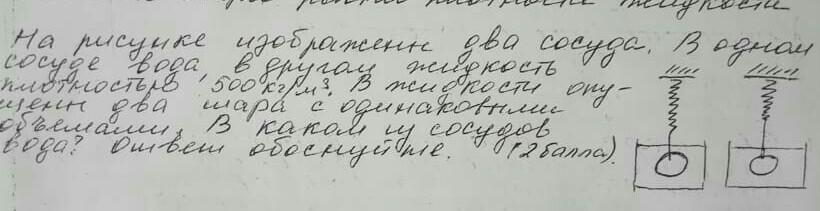 плотности жидкости
На рисунке изображены два сосуда. В одном
сосуде вода, в другом жидкость
плотностью 500 кг/м³. В жидкости опу-
щены два шара с одинаковыми
объемами. В каком из сосудов
вода? Ответ обоснуйте. (2 балла).